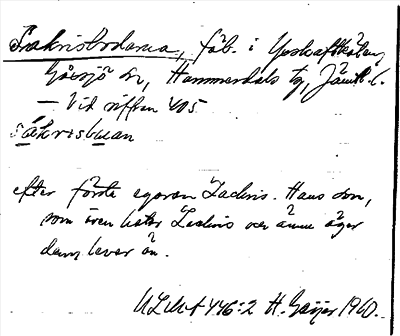 Sakrisbodarna, fäb. i
Gåxsjö sn, Hammerdals tg, Jämtl. l.
— Vid siffran 405
sákrisbuan
efter förste ägaren Zackris. Hans son,
som även heter Zackris och ännu äger
dem, lever än.
ULMA 446:2 H. Geijer 1960.